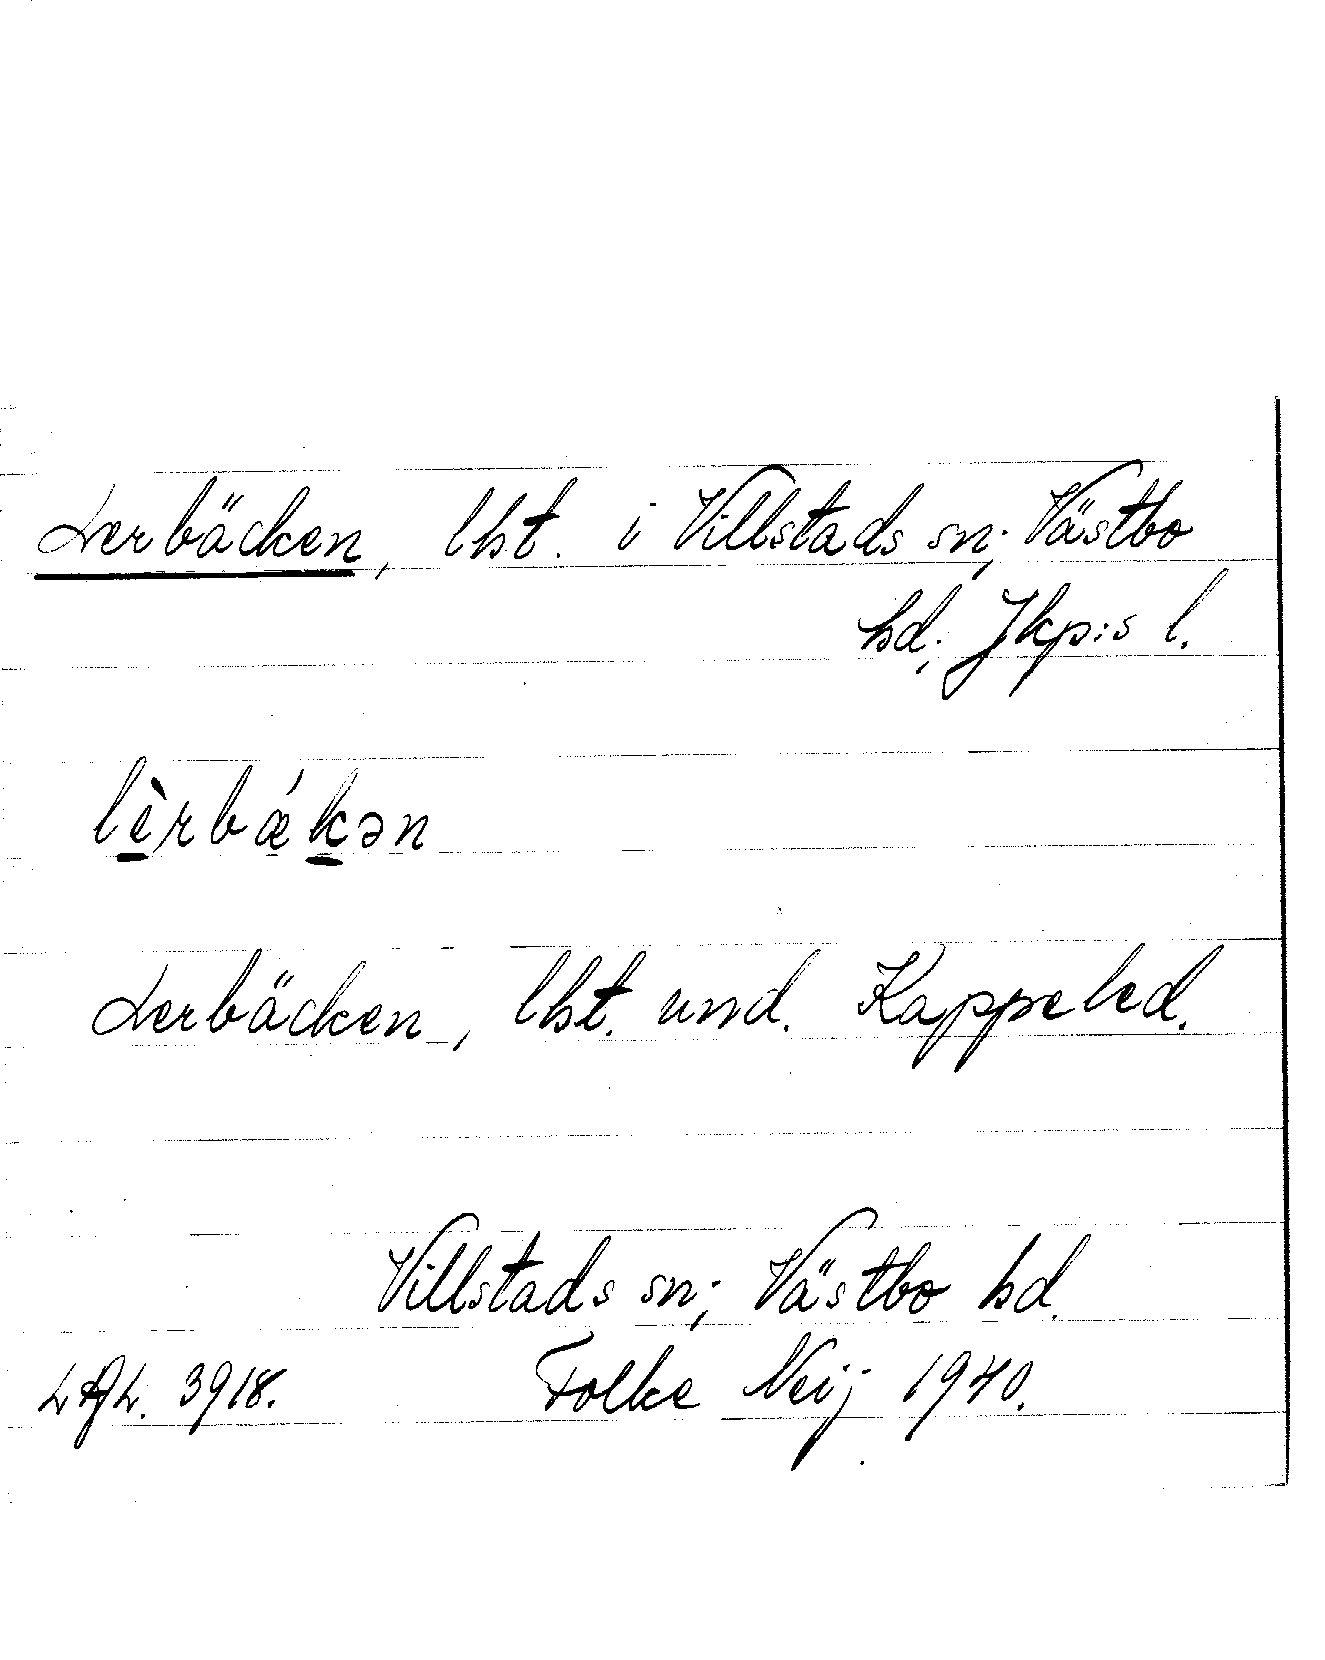 Lerbäcken, lht. i Villstads sn; Västbo
hd; Jkp:s l.
lèrbǽkən
Lerbäcken, lht. und. Kappeled.
Villstads sn; Västbo hd.
LAL. 3918. Folke Neij 1940.